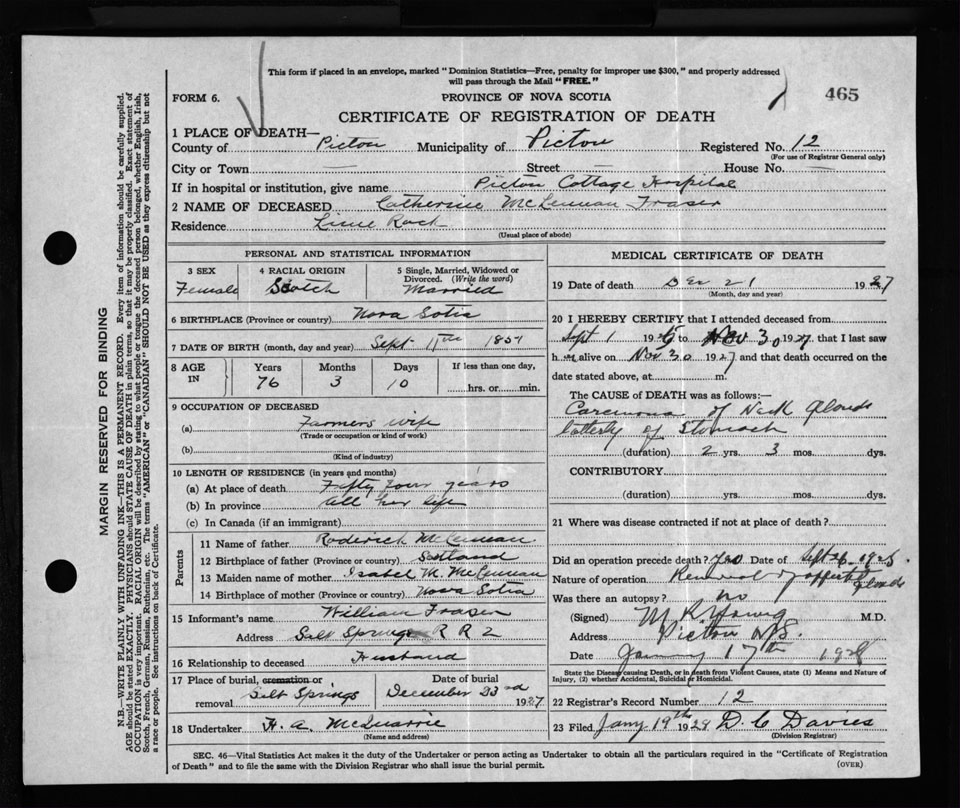 This form if placed in an envelope, marked " Dominion Statistics—Free, penalty for improper use $300," and properly addressed
will pass through the Mail "FREE."
465
FORM 6.
PROVINCE OF NOVA SCOTIA
CERTIFICATE OF REGISTRATION OF DEATH
1 PLACE OF DEATH—
County of Pictou Municipality of Pictou Registered No. 12
(For use of Registrar General only)
City or Town — Street — House No. —
If in hospital or institution, give name Pictou Cottage Hospital
2 NAME OF DECEASED Catherine McLennan Fraser
Residence Lime Rock
(Usual place of abode)
PERSONAL AND STATISTICAL INFORMATION
3 SEX
Female
4 RACIAL ORIGIN
Scotch
5 Single, Married, Widowed or
Divorced. (Write the word)
Married
6 BIRTHPLACE (Province or country) Nova Sotia
7 DATE OF BIRTH (month, day and year) Sept 11th 1851
8 AGE
IN
Years Months Days If less than one day,
76 3 10 hrs. or min.
9 OCCUPATION OF DECEASED
(a) Farmers wife
(Trade or occupation or kind of work)
(b)
(Kind of industry)
10 LENGTH OF RESIDENCE (in years and months)
(a) At place of death Fifty four years
(b) In province all her life
(c) In Canada (if an immigrant)
Parents
11 Name of father Roderick McLennan
12 Birthplace of father (Province or country) Scotland
13 Maiden name of mother Isabel M. McLennan
14 Birthplace of mother (Province or country) Nova Sotia
15 Informant's name William Fraser
Address Salt Springs R R 2
16 Relationship to deceased Husband
17 Place of burial, cremation or
removal Salt Springs
Date of burial
December 23rd 1927
18 Undertaker H. A. McQuarrie
(Name and address)
MEDICAL CERTIFICATE OF DEATH
19 Date of death Dec 21 1927
(Month, day and year)
20 I HEREBY CERTIFY that I attended deceased from
Sept 1 192 to Nov 30 1927, that I last saw
h er alive on Nov 30 1927 and that death occurred on the
date stated above, at m.
The CAUSE OF DEATH was as follows:—
Carcinoma of Neck Glands
latterly of Stomach
(duration) 2 yrs. 3 mos. dys.
CONTRIBUTORY
(duration) yrs. mos. dys.
21 Where was disease contracted if not at place of death?
Did an operation precede death? Yes Date of Sept 26
Nature of operation Removal of Glands
Was there an autopsy? no
(Signed) M.D.
Address Pictou N.S.
Date January 17th 1928
State the Disease causing Death, or in death from Violent Causes, state (1) Means and Nature of
Injury, (2) whether Accidental, Suicidal or Homicidal.
22 Registrar's Record Number 12
23 Filed Jany 19th 1928 D. C Davies
(Division Registrar)
SEC. 46—Vital Statistics Act makes it the duty of the Undertaker or person acting as Undertaker to obtain all the particulars required in the "Certificate of Registration
of Death" and to file the same with the Division Registrar who shall issue the burial permit.
(OVER)
MARGIN RESERVED FOR BINDING
N.B.—WRITE PLAINLY WITH UNFADING INK—THIS IS A PERMANENT RECORD. Every item of information should be carefully supplied.
AGE should be stated EXACTLY. PHYSICIANS should STATE CAUSE OF DEATH in plain terms, so that it may be properly classified. Exact statement of
OCCUPATION is very important. RACIAL ORIGIN will be described by stating to what people or tongue the deceased person belonged, whether English, Irish,
Scotch, French, German, Russian, Ruthenian, etc. The terms "AMERICAN" or "CANADIAN" SHOULD NOT BE USED as they express citizenship but not
a race or people. See instructions on back of Certificate.